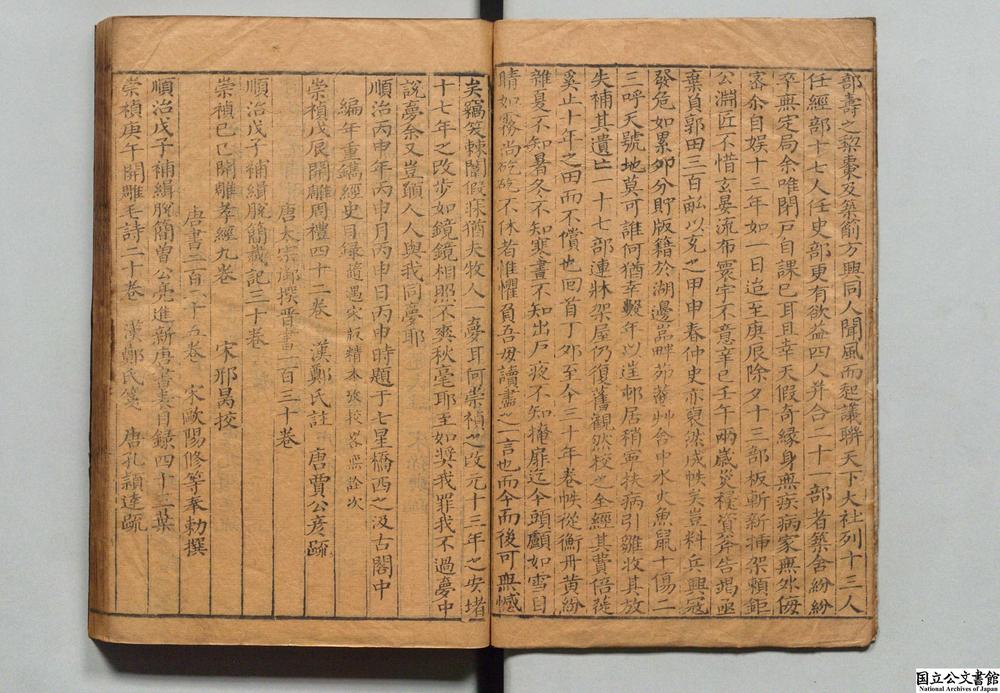 部壽之棃棗及築箭方興同人聞風而起議聯天下大社列十三人
任經部十七人任史部更有欲益四人并合二十一部者築舍紛紛
卒無定局余唯閉戶自課已耳且幸天假奇緣身無疾病家無外侮
密余自娛十三年如一日迨至庚辰除夕十三部板斬新插架賴鉅
公淵匠不惜玄晏流布寰宇不意辛巳壬午兩歲災祲資斧告竭亟
棄負郭田三百畝以充之甲申春仲史亦裒然成帙矣豈料兵興寇
發危如累卵分貯版籍於湖邊嵒畔茆菴艸舍中水火魚鼠十傷二
三呼天號地莫可誰何猶幸數年以逞邨居稍寧扶病引雛收其放
失補其遺亡一十七部連牀架屋仍復舊觀然校之全經其費倍徙
奚止十年之田而不償也回首丁卯至今三十年卷帙從衡丹黄紛
雜夏不知暑冬不知寒晝不知出戶夜不知掩扉迄今頭顱如雪目
睛如霧尚矻矻不休者惟懼負吾母讀盡之一言也而今而後可無憾
矣竊笑棘闈假寐猶夫牧人一夢耳何崇禎之改元十三年之安堵
十七年之改步如鏡鏡相照不爽秋毫耶至如奬我罪我不過夢中
說夢余又豈願人人與我同夢耶
順治丙申年丙申月丙申日丙申時題于七星橋西之汲古閣中
編年重鐫經史目録隨遇宋版精本攷校畧無詮次
崇禎戊辰開雕周禮四十二卷 漢鄭氏註 唐賈公彦疏
唐太宗御撰晋書一百三十卷
順治戊子補緝脫簡載記三十卷
崇禎己巳開雕孝經九卷 宋邢昺校
唐書二百二十五卷 宋歐陽修等奉勅撰
順治戊子補緝脫簡曾公亮進新唐書表目録四十三葉
崇禎庚午開雕毛詩二十卷 漢鄭氏箋 唐孔穎達疏
国立公文書館
National Archives of Japan